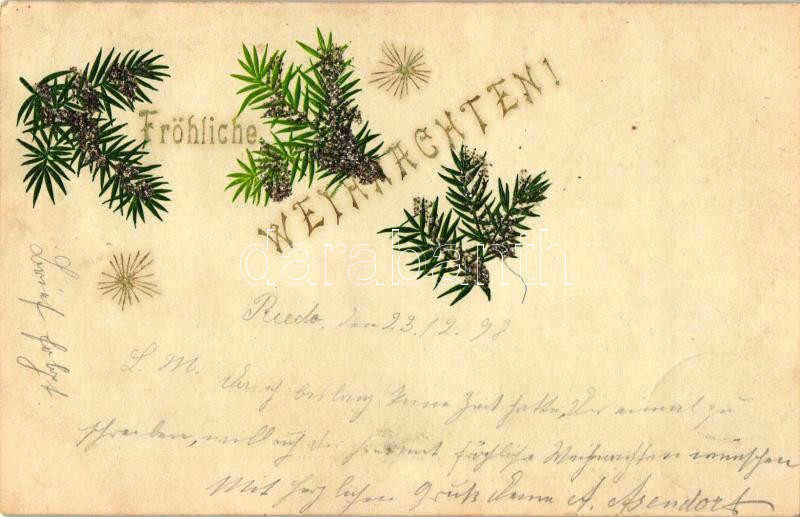 Fröhliche
WEIHNACHTEN!
darabanth
den 23.12.98
L. M. Da ich bislang keine Zeit hatte, Dir einmal zu
schreiben, will ich Dir hiermit fröhliche Weihnachten wünschen
Mit herzlichem Gruß Deine A. Asendorf
Brief folgt.